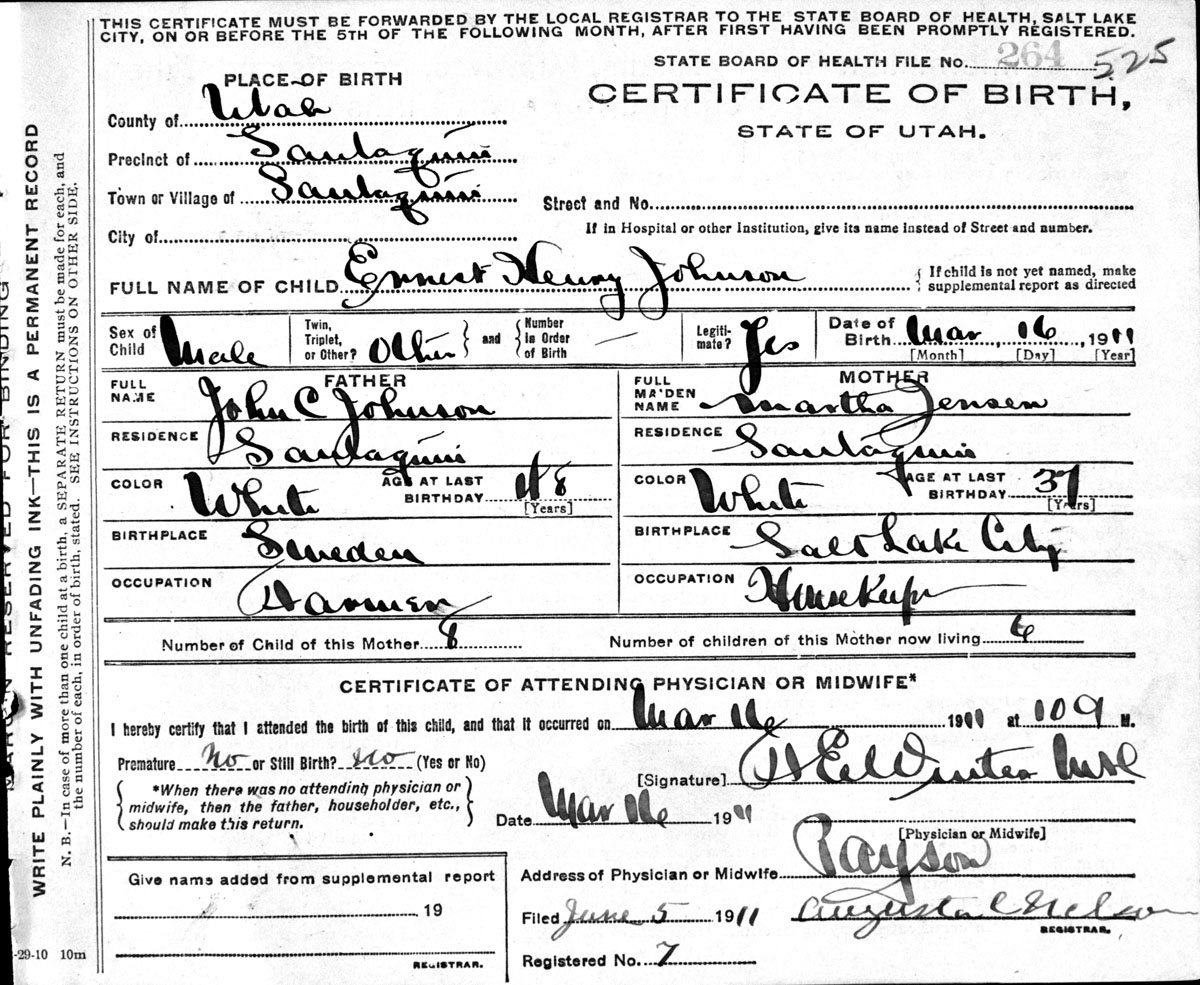 THIS CERTIFICATE MUST BE FORWARDED BY THE LOCAL REGISTRAR TO THE STATE BOARD OF HEALTH, SALT LAKE
CITY, ON OR BEFORE THE 5TH OF THE FOLLOWING MONTH, AFTER FIRST HAVING BEEN PROMPTLY REGISTERED.
STATE BOARD OF HEALTH FILE No. 264 525
PLACE OF BIRTH
CERTIFICATE OF BIRTH,
STATE OF UTAH.
County of Utah
Precinct of Santaquin
Town or Village of Santaquin
Street and No.
City of
If in Hospital or other Institution, give its name instead of Street and number.
FULL NAME OF CHILD Ernest Henry Johnson
{ If child is not yet named, make
supplemental report as directed
Sex of Child Male
Twin, Triplet, or Other? Other } and { Number in Order of Birth —
Legiti-mate? Yes
Date of Birth Mar, 16, 1911
[Month] [Day] [Year]
FATHER
FULL NAME John C Johnson
RESIDENCE Santaquin
COLOR White AGE AT LAST BIRTHDAY 48
[Years]
BIRTHPLACE Sweden
OCCUPATION Farmer
MOTHER
FULL MAIDEN NAME Martha Jensen
RESIDENCE Santaquin
COLOR White AGE AT LAST BIRTHDAY 37
[Years]
BIRTHPLACE Salt Lake City
OCCUPATION Housekeeper
Number of Child of this Mother 8 Number of children of this Mother now living 6
CERTIFICATE OF ATTENDING PHYSICIAN OR MIDWIFE*
I hereby certify that I attended the birth of this child, and that it occurred on Mar 16 1911 at 109 M.
Premature No or Still Birth? No (Yes or No)
[Signature]
{ *When there was no attending physician or
midwife, then the father, householder, etc.,
should make this return. }
Date Mar 16 1911
[Physician or Midwife]
Address of Physician or Midwife Payson
Give name added from supplemental report
19
REGISTRAR.
Filed June 5 1911 August C Nelson
REGISTRAR.
Registered No. 7
MARGIN RESERVED FOR BINDING
WRITE PLAINLY WITH UNFADING INK—THIS IS A PERMANENT RECORD
N. B.—In case of more than one child at a birth, a SEPARATE RETURN must be made for each, and
the number of each, in order of birth, stated. SEE INSTRUCTIONS ON OTHER SIDE.
-29-10 10m